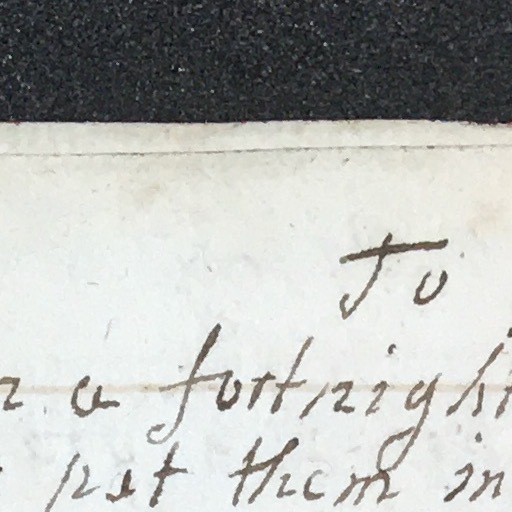 To
a fortnight
put them in